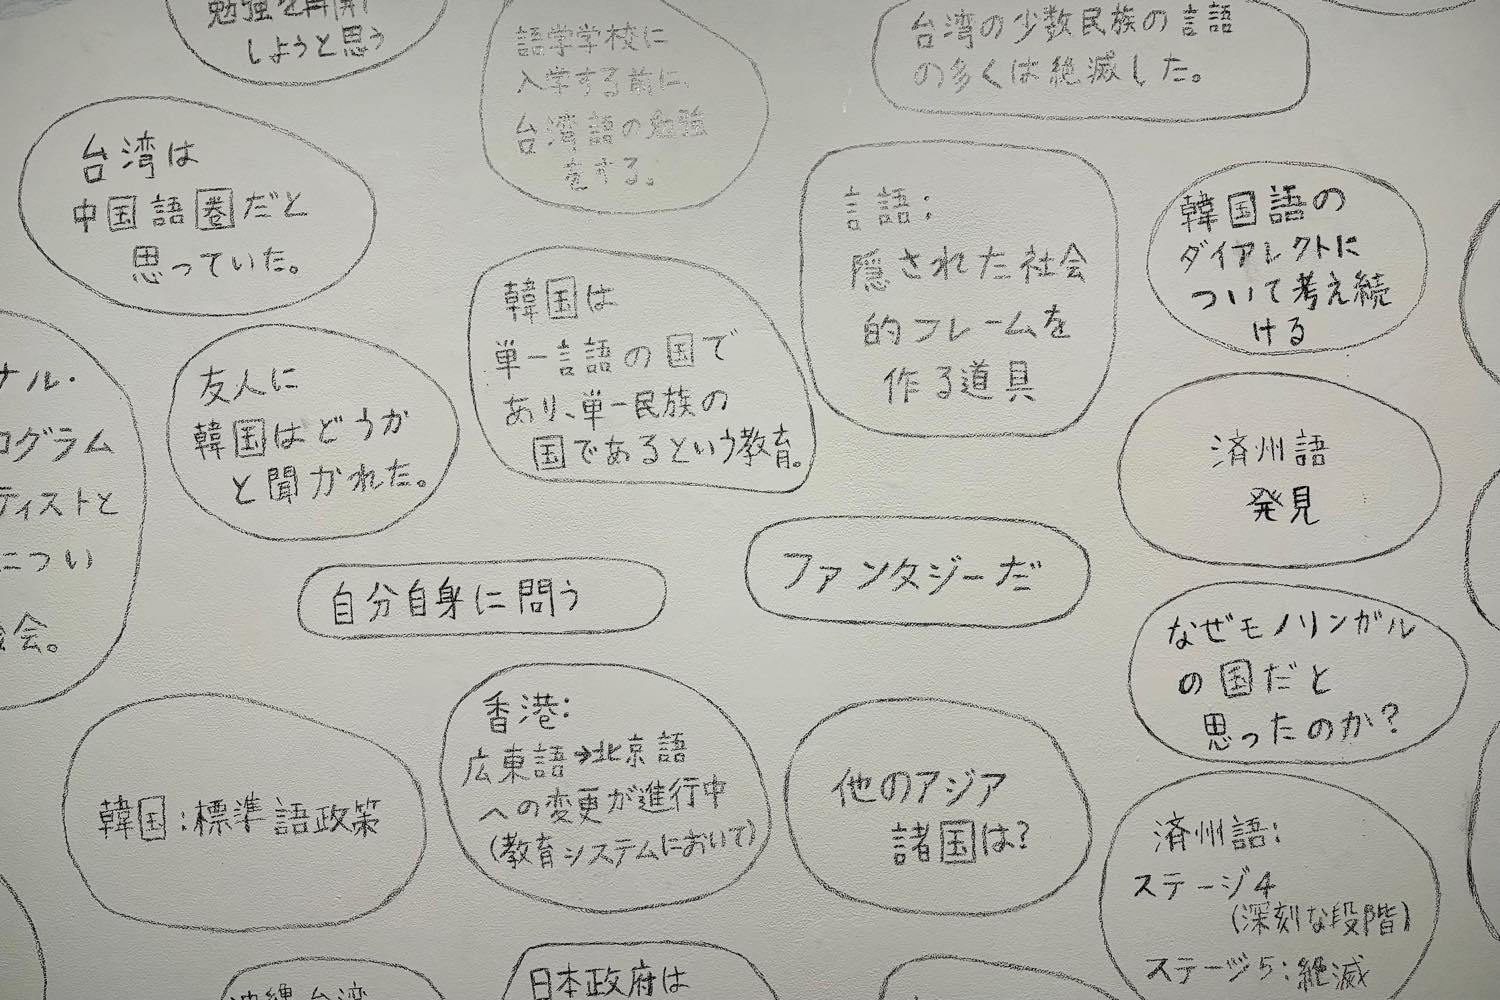 勉強を再開
しようと思う
語学学校に
入学する前に
台湾語の勉強
をする。
台湾の少数民族の言語
の多くは絶滅した。
台湾は
中国語圏だと
思っていた。
言語:
隠された社会
的フレームを
作る道具
韓国語の
ダイアレクトに
ついて考え続
ける
韓国は
単一言語の国で
あり、単一民族の
国であるという教育。
友人に
韓国はどうか
と聞かれた。
ナル・
ログラム
ティストと
につい
会。
済州語
発見
ファンタジーだ
自分自身に問う
なぜモノリンガル
の国だと
思ったのか?
香港:
広東語→北京語
への変更が進行中
(教育システムにおいて)
韓国:標準語政策
他のアジア
諸国は?
済州語:
ステージ4
(深刻な段階)
ステージ5:絶滅
日本政府は
沖縄、台湾